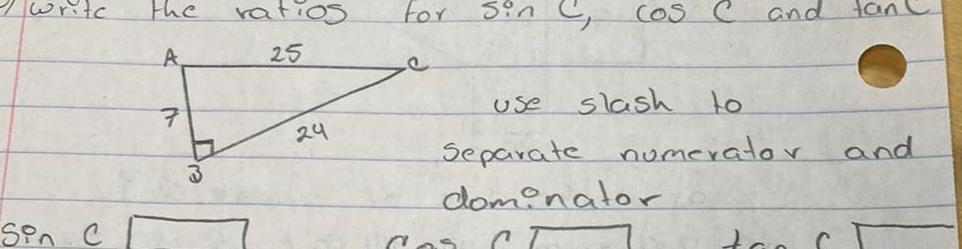 write the ratios for sin C, cos C and tan C
A 25 C
7
24
B
use slash to
separate numerator and
dominator
sin C
cos C
tan C